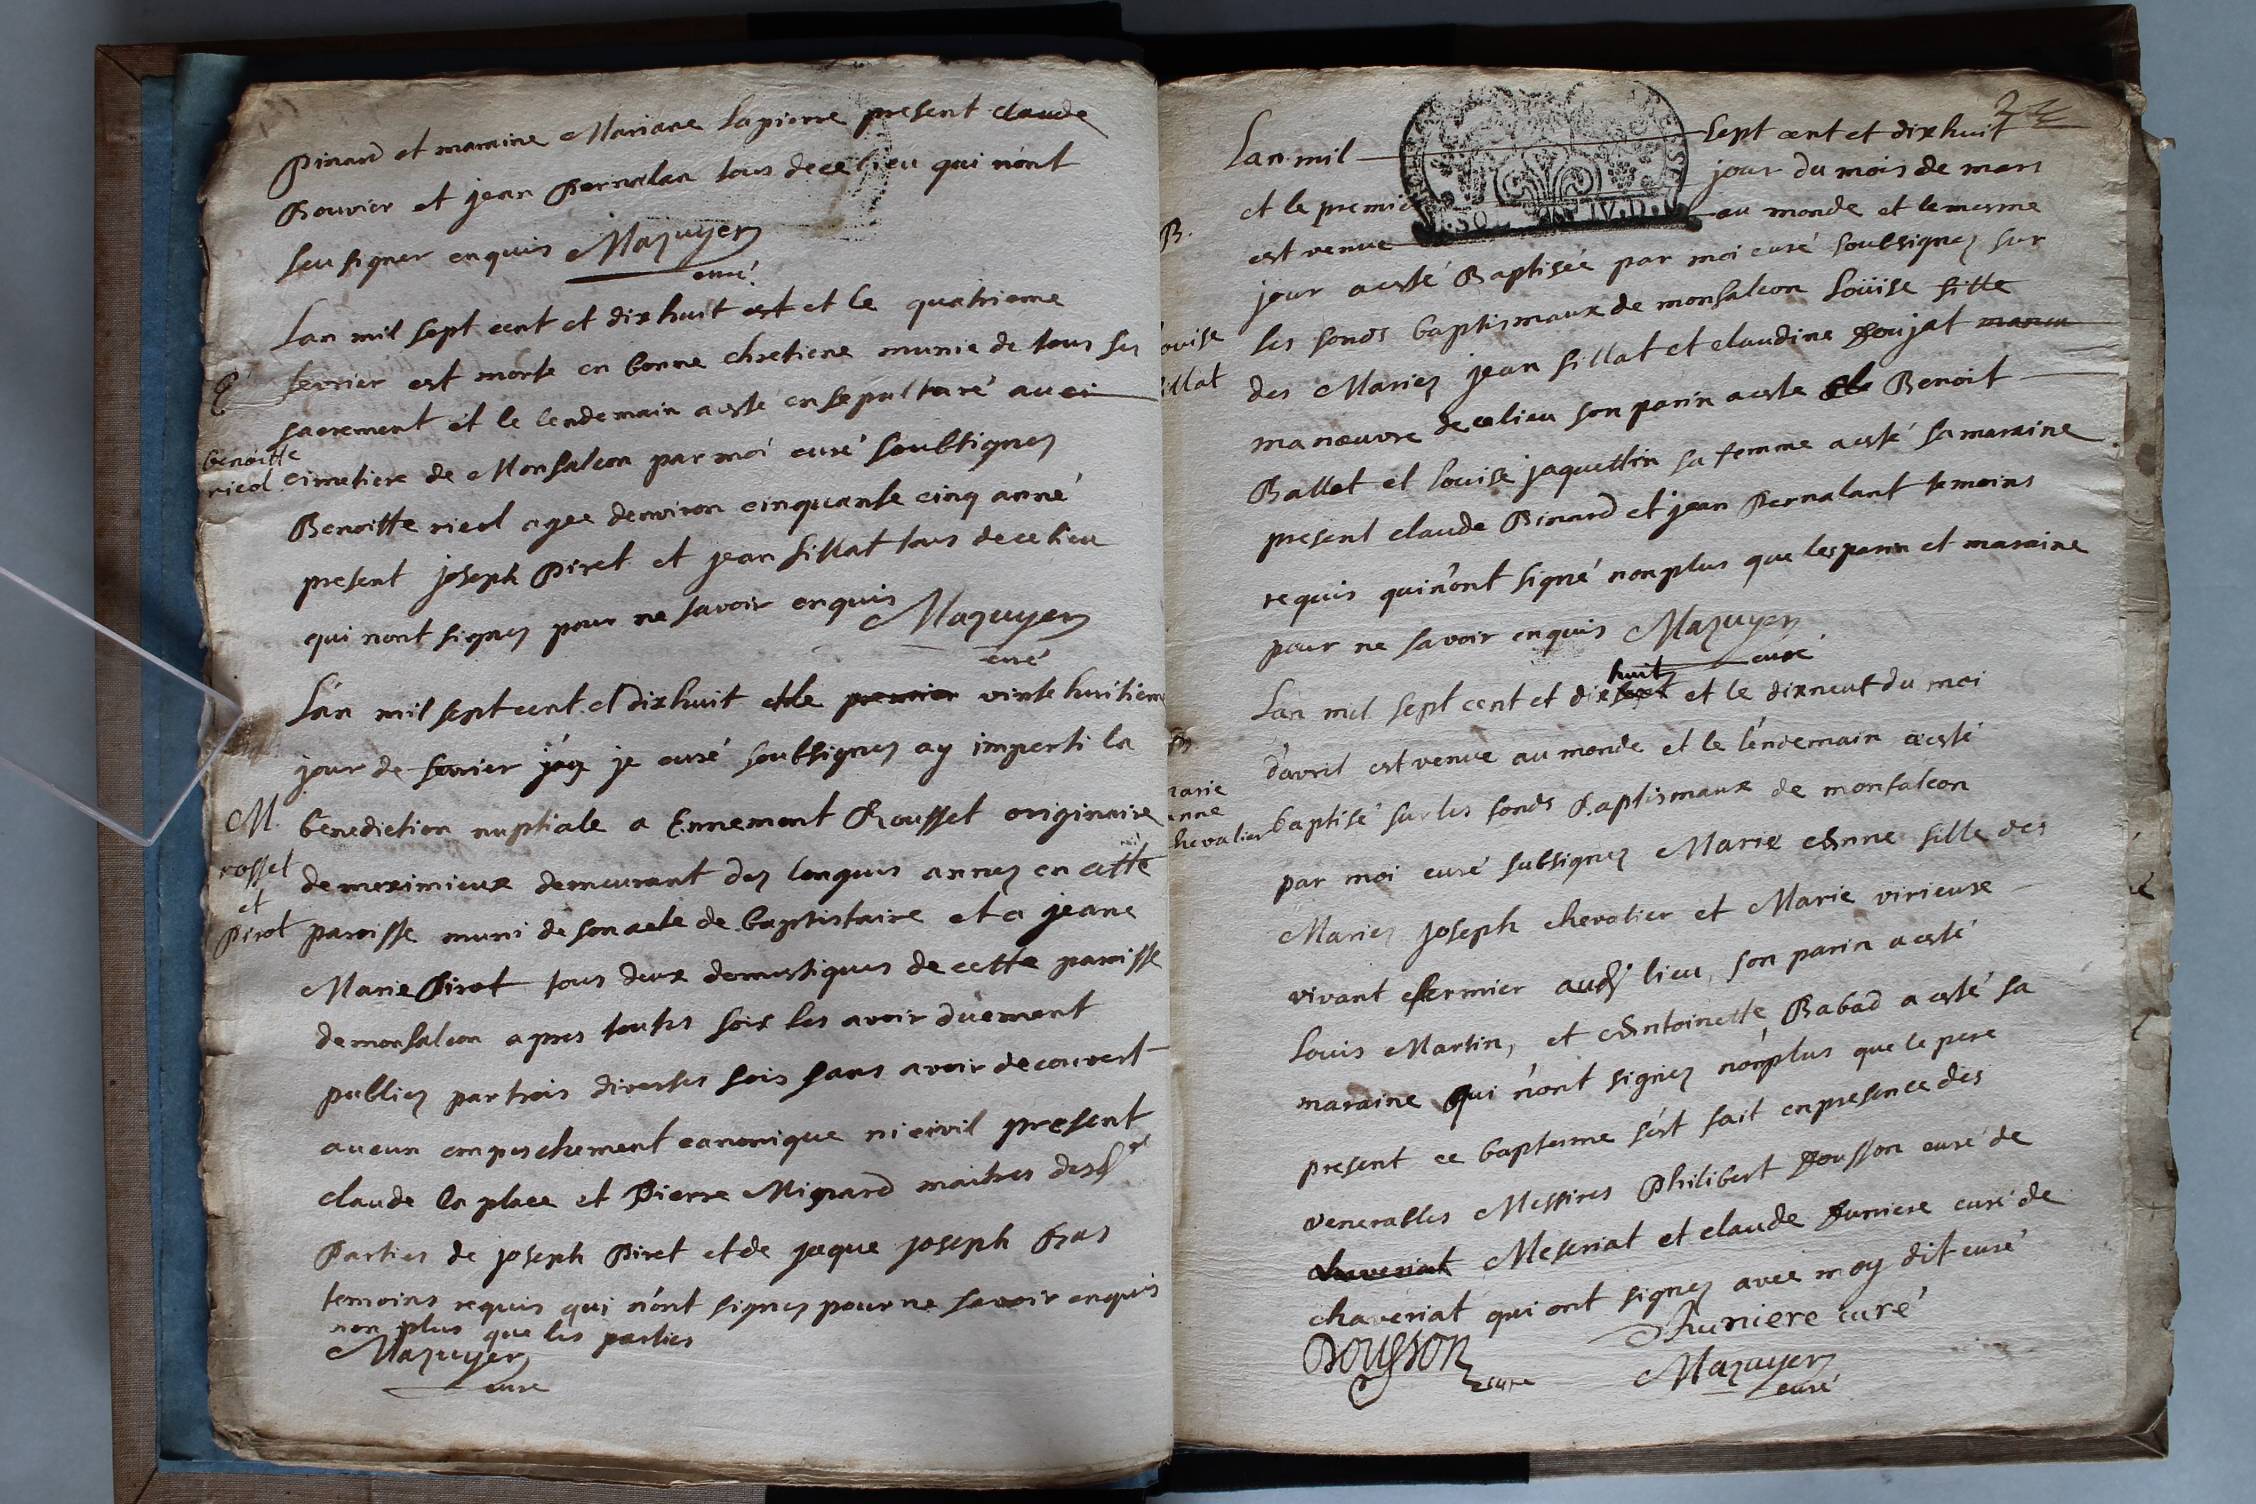 pinard et maraine Mariane Lapierre present claude
Bouvier et jean Pernalan tous de ce lieu qui n'ont
sçu signer enquis Mazuyer
curé
Lan mil sept cent et dixhuit est et le quatrieme
fevrier est morte en bonne chretiene munie de tous ses
sacrement et le lendemain a esté ensepulturé au ci
benoitte
ricol
cimetiere de Monfalcon par moi curé soubsignez
Benoitte ricol agee denviron cinquante cinq anné
present joseph Piret et jean fillat tous de ce lieu
qui n'ont signez pour ne savoir enquis Mazuyer
curé
Lan mil sept cent et dixhuit et le premier vinte huitieme
jour de fevrier jay je curé soubsignez ay imperti la
M.
rosset
et
pirot
benediction nuptiale a Ennemont Rousset originaire
de meximieux demeurant dez longues annez en cette
paroisse muni de son acte de baptistaire et a jeane
Marie Pirot tous deux domestiques de cette paroisse
de monfalcon apres toutes fois les avoir duement
publiez par trois diverses fois sans avoir decouvert
aucun empeschement canonique ni civil present
claude la place et Pierre Mignard maitres desd
Parties de joseph Piret et de jaque joseph Bas
temoins requis qui n'ont signez pour ne savoir enquis
non plus que les parties
Mazuyer
curé
Lan mil sept cent et dixhuit
et le premier jour du mois de mars
B.
est venue au monde et le mesme
jour a esté Baptisée par moi curé soubsignez sur
ouise
illat
les fonds baptismaux de monfalcon Loüise fille
des Mariez jean fillat et claudine Doujat manou
manœuvre de ce lieu son parin a este Benoit
Ballet et Louise jaquettin sa femme a esté sa maraine
present claude Binard et jean Pernalant temoins
requis qui n'ont signé non plus que les parin et maraine
pour ne savoir enquis Mazuyer
curé
huit
Lan mil sept cent et dixsept et le dixneuf du moi
d'avril est venue au monde et le lendemain a esté
B.
marie
anne
chevalier
baptisé sur les fonds Baptismaux de monfalcon
par moi curé subsignez Marie Anne fille des
Mariez Joseph chevalier et Marie virieuxe
vivant fermier aud lieu, son parin a esté
Louis Martin, et Antoinette Babad a esté sa
maraine qui n'ont signez non plus que le pere
present ce baptesme s'est fait en presence des
venerables Messires Philibert Dousson curé de
chaveriat Meseriat et claude Duniere curé de
chaveriat qui ont signez avec moy dit curé
Dousson curé
Duniere curé
Mazuyer
curé